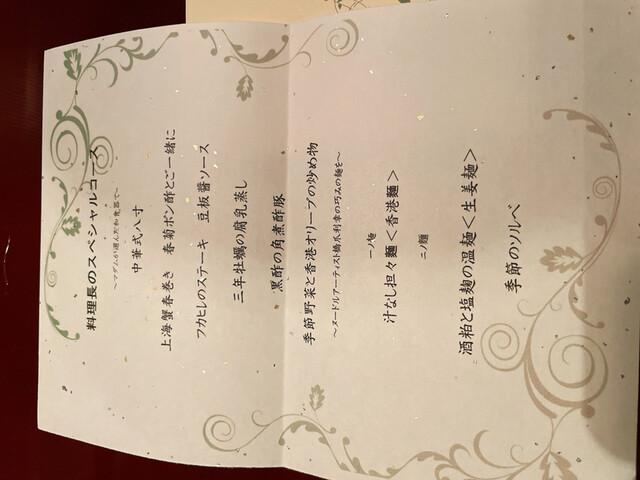 料理長のスペシャルコース
～マダムが選んだ和食器で～
中華式八寸
上海蟹春巻き 春菊ポン酢とご一緒に
フカヒレのステーキ 豆板醤ソース
三年牡蠣の腐乳蒸し
黒酢の角煮酢豚
季節野菜と香港オリーブの炒め物
～ヌードルアーティスト橋爪利幸の巧みの麺を～
一ノ麺
汁なし担々麺＜香港麺＞
二ノ麺
酒粕と塩麹の温麺＜生姜麺＞
季節のソルベ